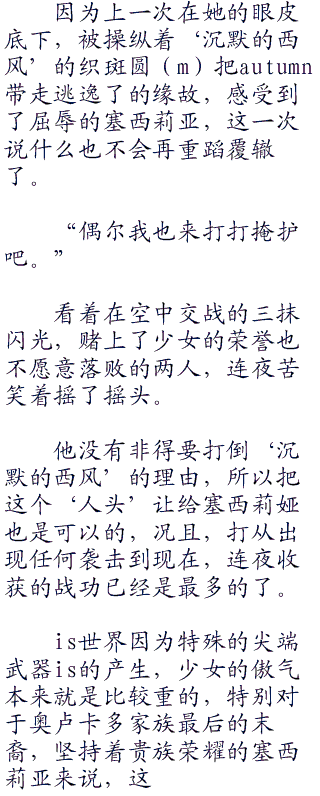 因为上一次在她的眼皮
底下，被操纵着‘沉默的西
风’的织斑圆（m）把autumn
带走逃逸了的缘故，感受到
了屈辱的塞西莉亚，这一次
说什么也不会再重蹈覆辙
了。
“偶尔我也来打打掩护
吧。”
看着在空中交战的三抹
闪光，赌上了少女的荣誉也
不愿意落败的两人，连夜苦
笑着摇了摇头。
他没有非得要打倒‘沉
默的西风’的理由，所以把
这个‘人头’让给塞西莉娅
也是可以的，况且，打从出
现任何袭击到现在，连夜收
获的战功已经是最多的了。
is世界因为特殊的尖端
武器is的产生，少女的傲气
本来就是比较重的，特别对
于奥卢卡多家族最后的末
裔，坚持着贵族荣耀的塞西
莉亚来说，这